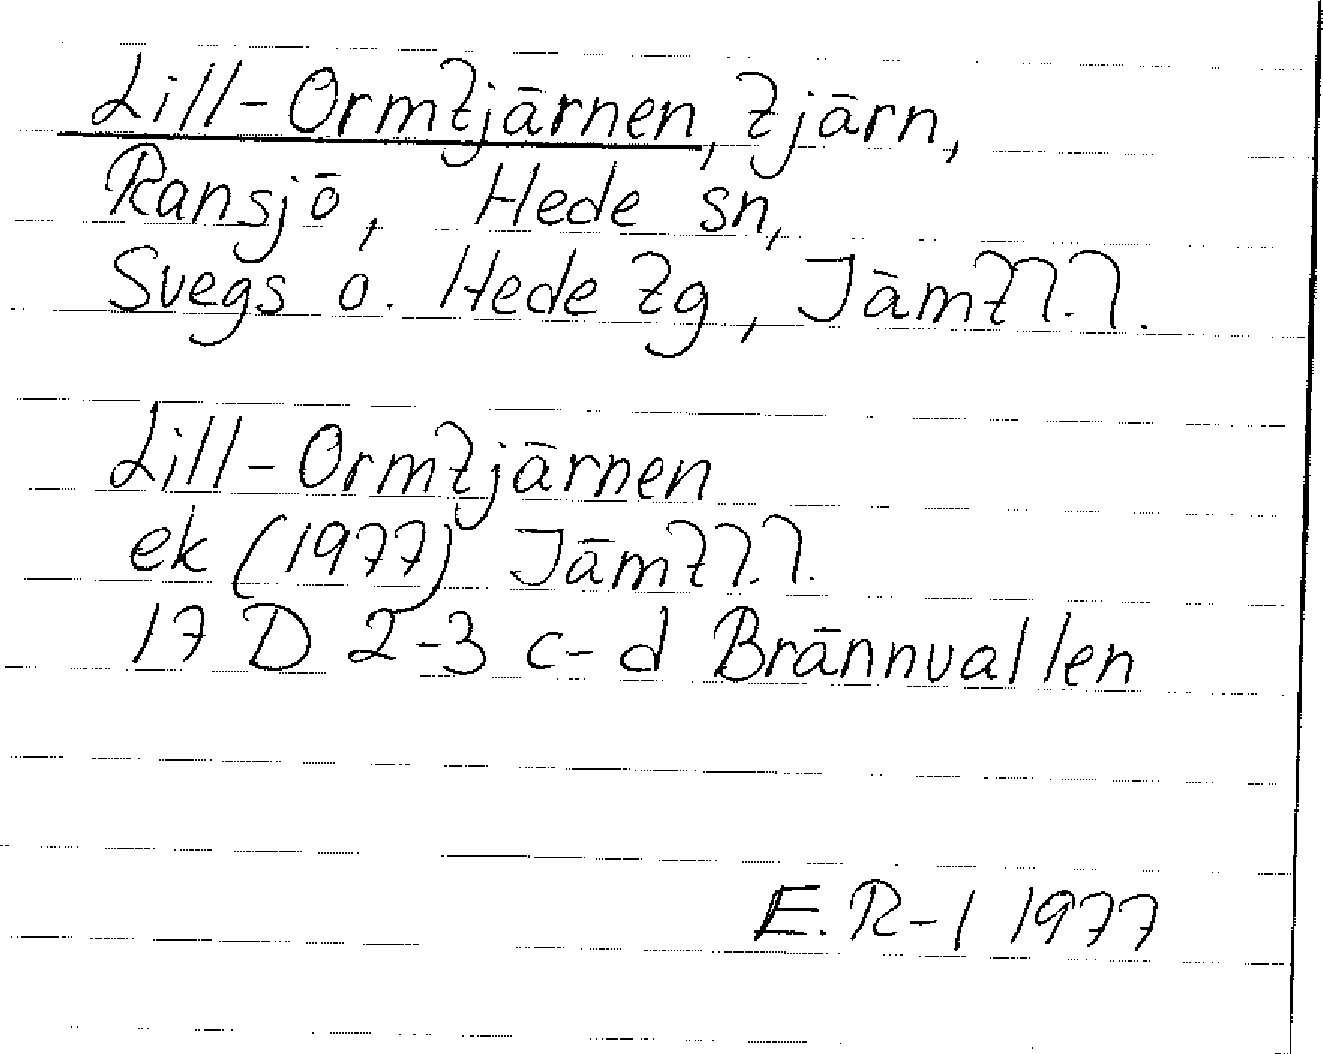 Lill-Ormtjärnen, tjärn,
Ransjö, Hede sn,
Svegs o. Hede tg, Jämtl.l.
Lill-Ormtjärnen
ek (1977) Jämtl.l.
17 D 2-3 c-d Brännvallen
E.R-l 1977